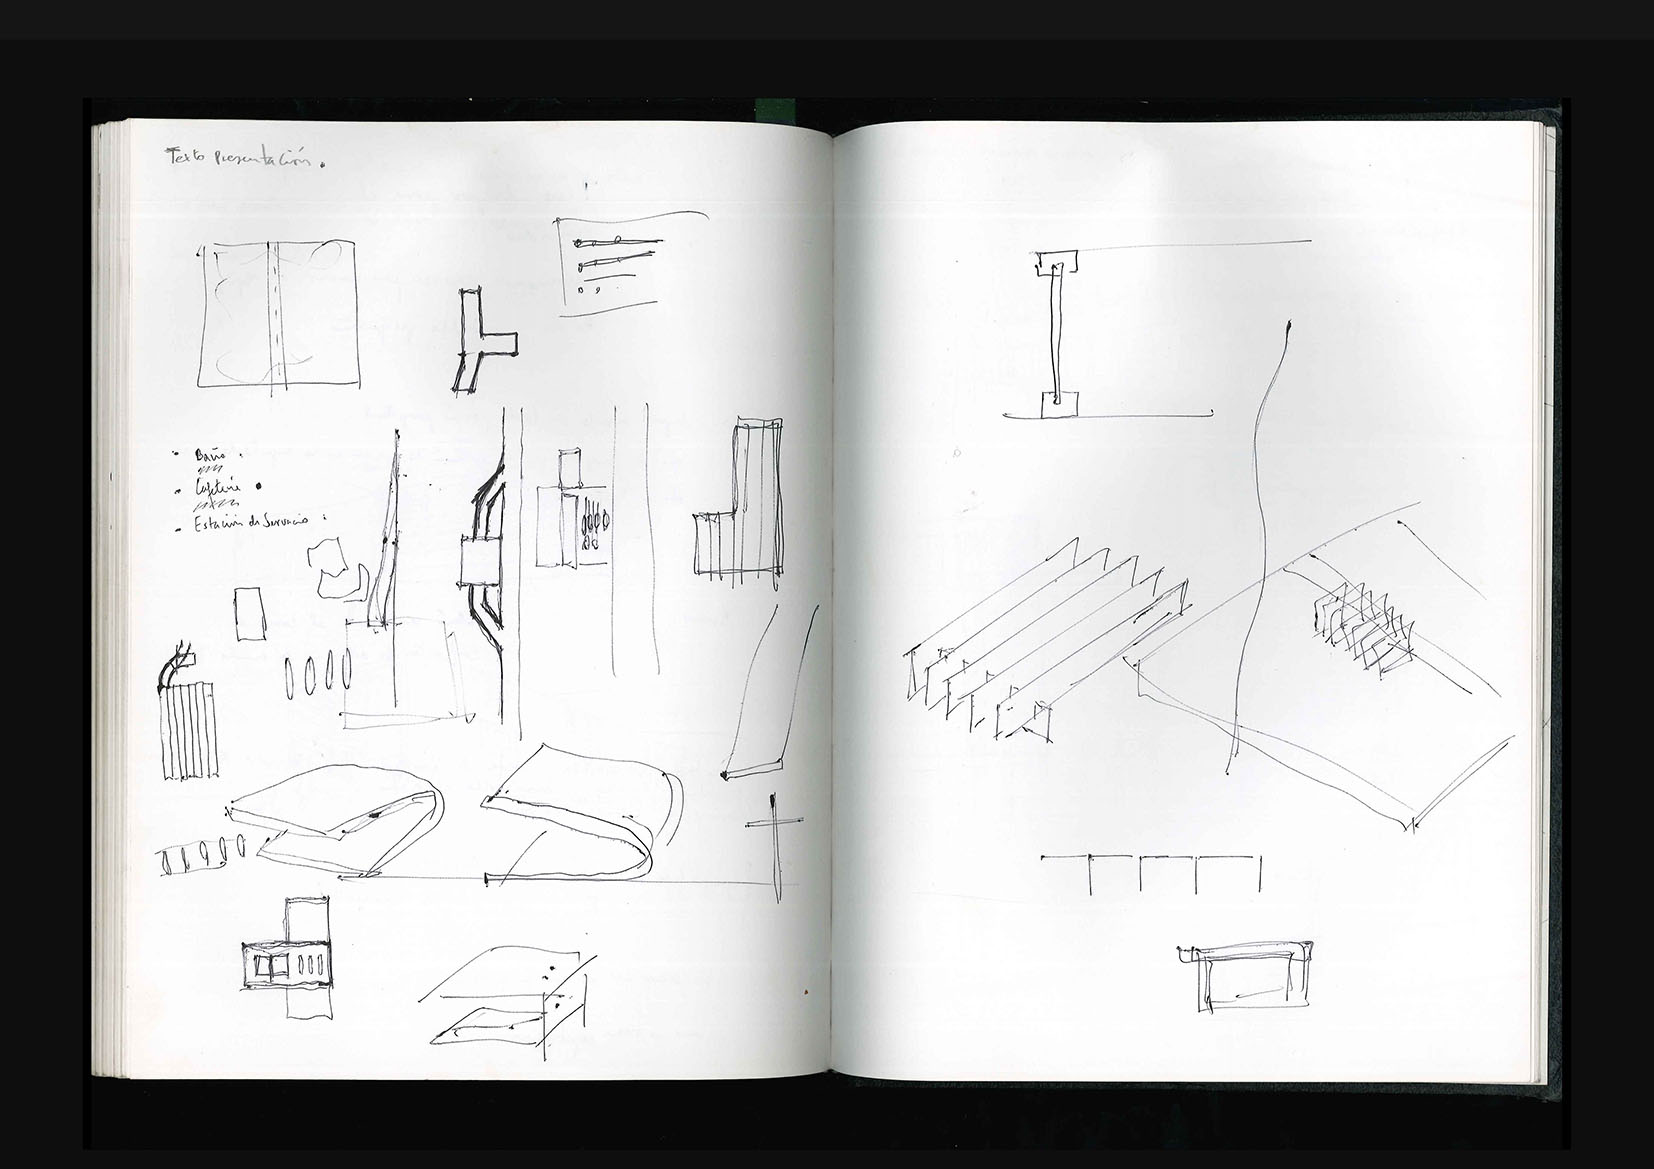 Texto presentación.
• Baño.
• Cafetería •
• Estación de Servicio